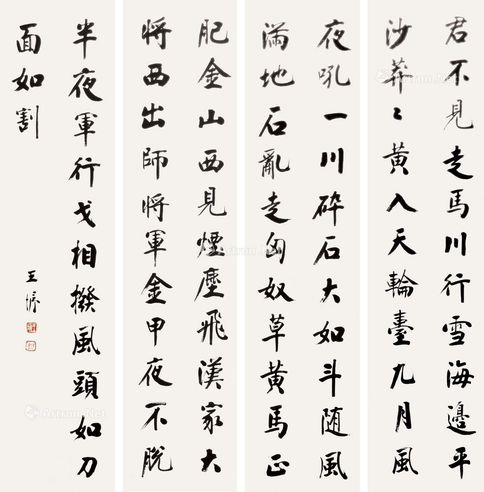 君不見走馬川行雪海邊平
沙莽〻黃入天輪臺九月風
夜吼一川碎石大如斗随風
滿地石亂走匈奴草黃馬正
肥金山西見煙塵飛漢家大
將西出師將軍金甲夜不脫
半夜軍行戈相撥風頭如刀
面如割
王
Artron.Net